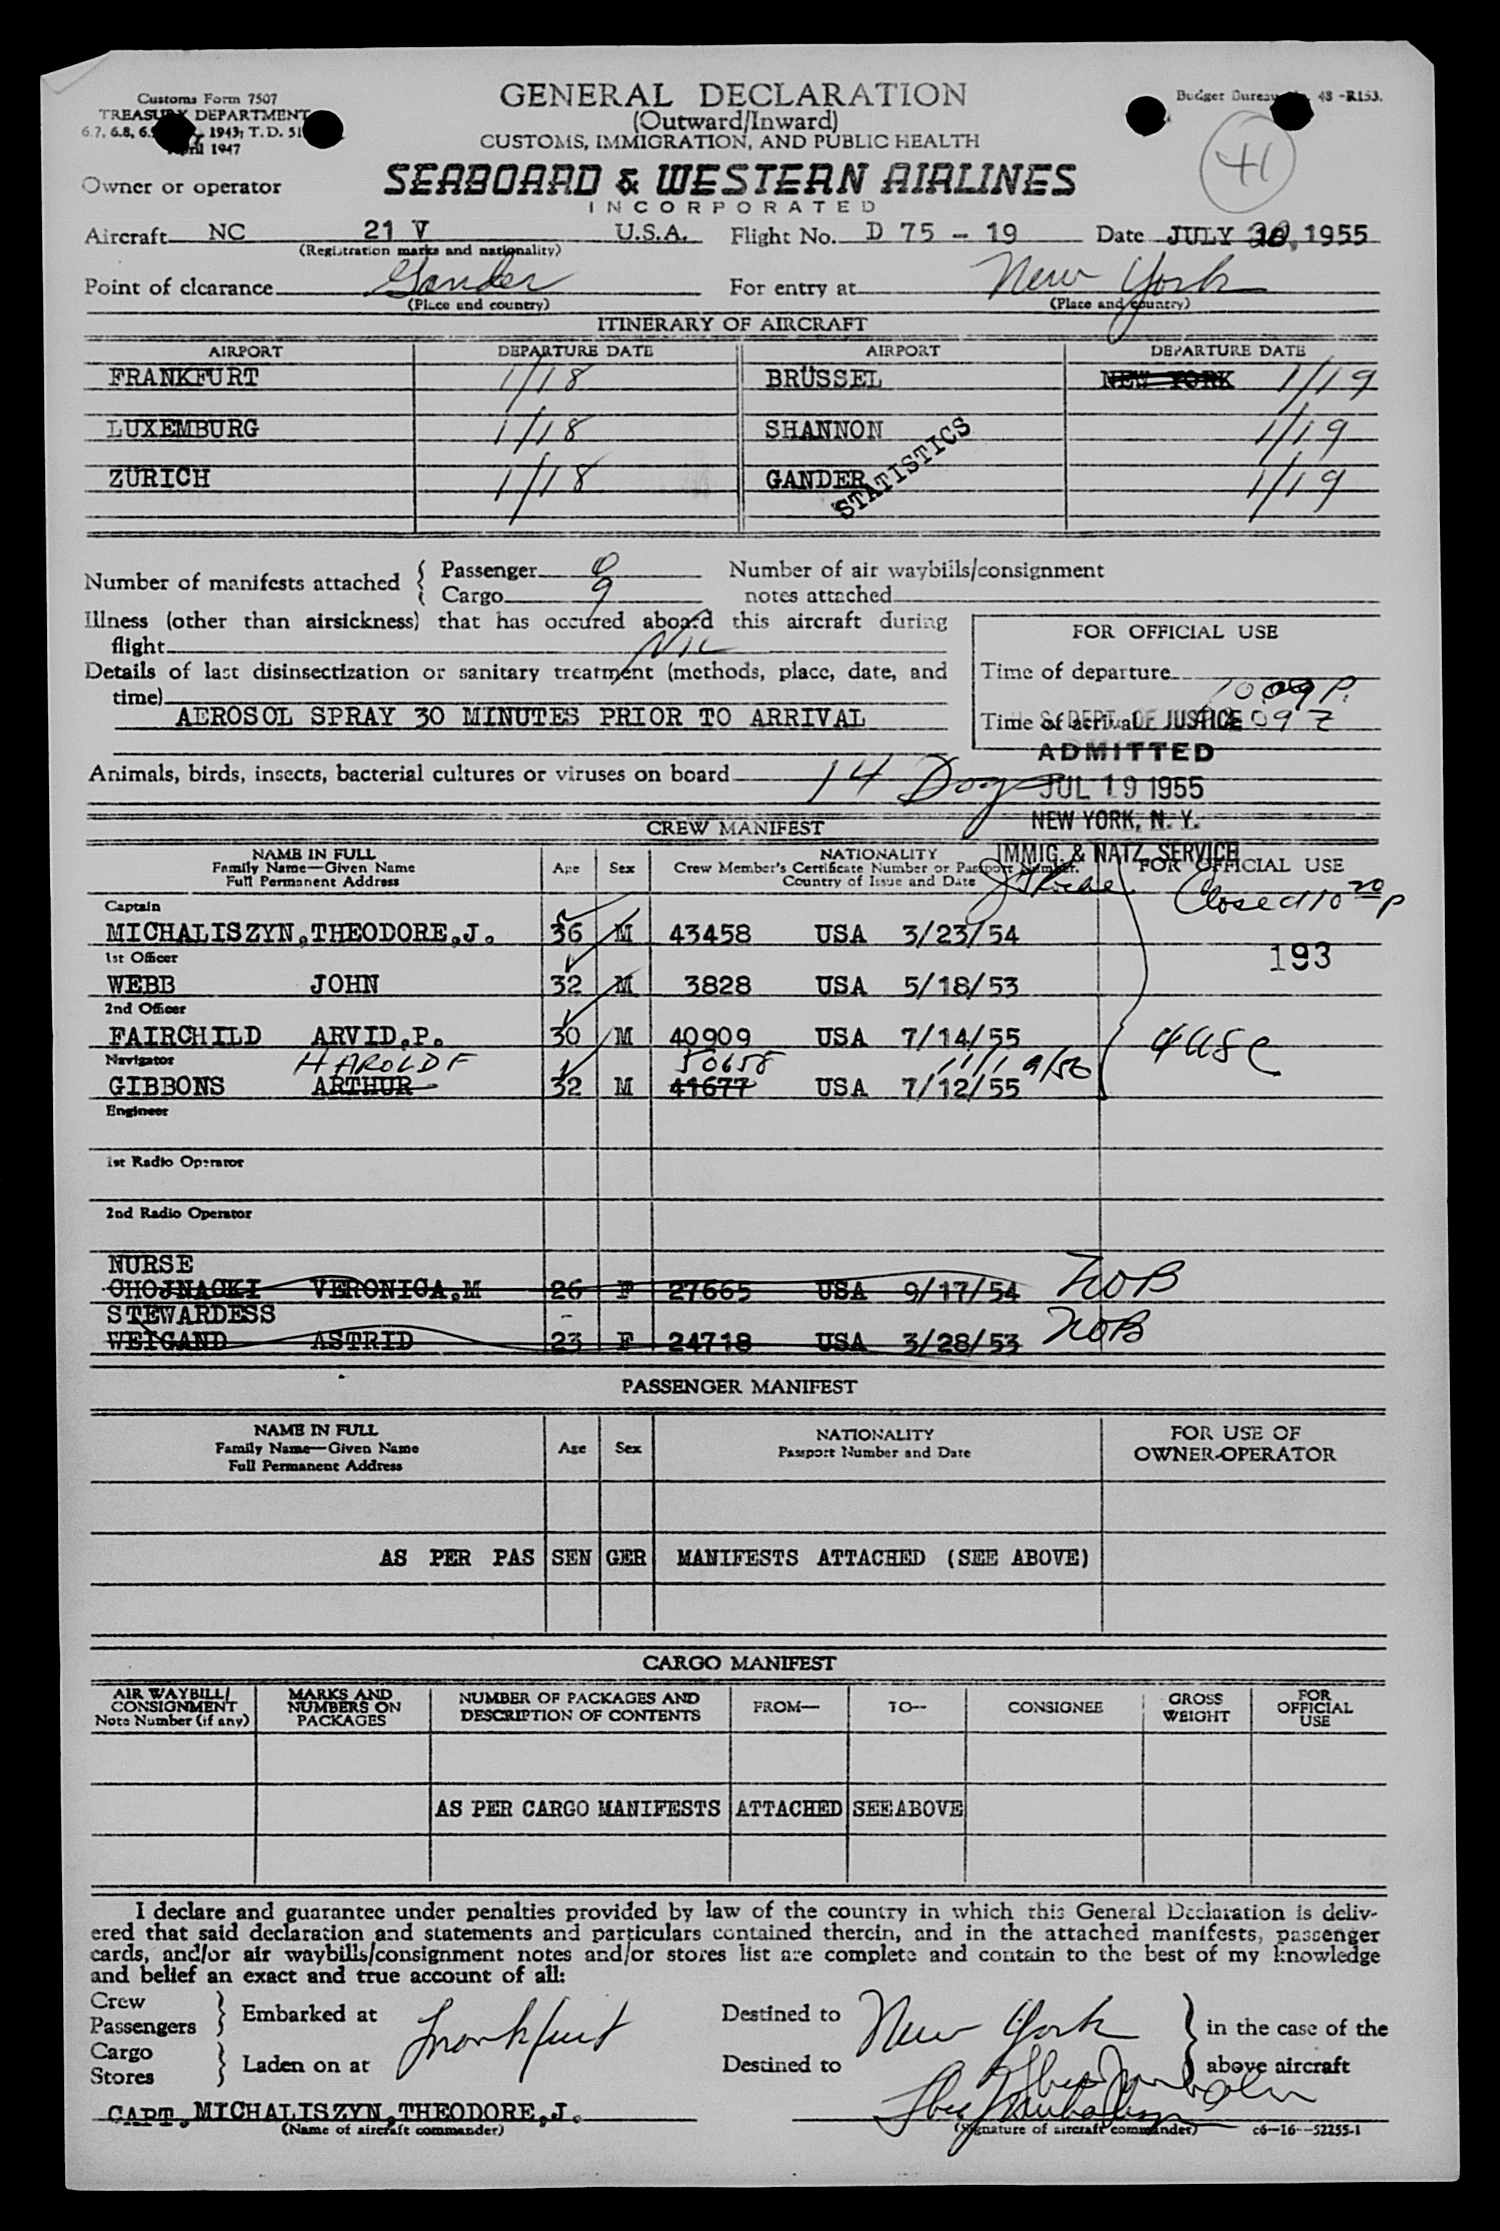 Customs Form 7507
TREASURY DEPARTMENT
1943; T.D.
April 1947
GENERAL DECLARATION
(Outward/Inward)
CUSTOMS, IMMIGRATION, AND PUBLIC HEALTH
Budget Bureau 48 -R153.
41
Owner or operator SEABOARD & WESTERN AIRLINES
INCORPORATED
Aircraft NC 21 V U.S.A. Flight No. D 75 - 19 Date JULY 1955
(Registration marks and nationality)
Point of clearance Gander For entry at New York
(Place and country) (Place and country)
ITINERARY OF AIRCRAFT
AIRPORT DEPARTURE DATE AIRPORT DEPARTURE DATE
FRANKFURT 1/18 BRÜSSEL NEW YORK 1/19
LUXEMBURG 1/18 SHANNON 1/19
ZURICH 1/18 GANDER 1/19
STATISTICS
Number of manifests attached { Passenger 0 Number of air waybills/consignment
Cargo 9 notes attached
Illness (other than airsickness) that has occured aboard this aircraft during
flight Nil
FOR OFFICIAL USE
Details of last disinsectization or sanitary treatment (methods, place, date, and
time)
Time of departure
AEROSOL SPRAY 30 MINUTES PRIOR TO ARRIVAL
Time of arrival
DEPT. OF JUSTICE
ADMITTED
Animals, birds, insects, bacterial cultures or viruses on board 14 Dog
JUL 19 1955
NEW YORK, N. Y.
IMMIG. & NATZ. SERVICE
CREW MANIFEST
NAME IN FULL
Family Name—Given Name
Full Permanent Address
Age Sex
NATIONALITY
Crew Member's Certificate Number or Passport Number.
Country of Issue and Date
FOR OFFICIAL USE
Closed 10 20 p
Captain
MICHALISZYN,THEODORE,J. 36 M 43458 USA 3/23/54
193
1st Officer
WEBB JOHN 32 M 3828 USA 5/18/53
2nd Officer
FAIRCHILD ARVID,P. 30 M 40909 USA 7/14/55
4 USC
Navigator HAROLD F 50658 11/19/56
GIBBONS ARTHUR 32 M 41677 USA 7/12/55
Engineer
1st Radio Operator
2nd Radio Operator
NURSE
CHOJNACKI VERONICA,M 26 F 27665 USA 9/17/54 NOB
STEWARDESS
WEIGAND ASTRID 23 F 24718 USA 3/28/53 NOB
PASSENGER MANIFEST
NAME IN FULL
Family Name—Given Name
Full Permanent Address
Age Sex
NATIONALITY
Passport Number and Date
FOR USE OF
OWNER-OPERATOR
AS PER PAS SEN GER MANIFESTS ATTACHED (SEE ABOVE)
CARGO MANIFEST
AIR WAYBILL/
CONSIGNMENT
Note Number (if any)
MARKS AND
NUMBERS ON
PACKAGES
NUMBER OF PACKAGES AND
DESCRIPTION OF CONTENTS
FROM—
TO—
CONSIGNEE
GROSS
WEIGHT
FOR
OFFICIAL
USE
AS PER CARGO MANIFESTS ATTACHED SEE ABOVE
I declare and guarantee under penalties provided by law of the country in which this General Declaration is deliv-
ered that said declaration and statements and particulars contained therein, and in the attached manifests, passenger
cards, and/or air waybills/consignment notes and/or stores list are complete and contain to the best of my knowledge
and belief an exact and true account of all:
Crew
Passengers } Embarked at Frankfurt Destined to New York } in the case of the
Cargo
Stores } Laden on at Destined to above aircraft
CAPT. MICHALISZYN,THEODORE,J.
(Name of aircraft commander) (Signature of aircraft commander) c6—16—52255-1